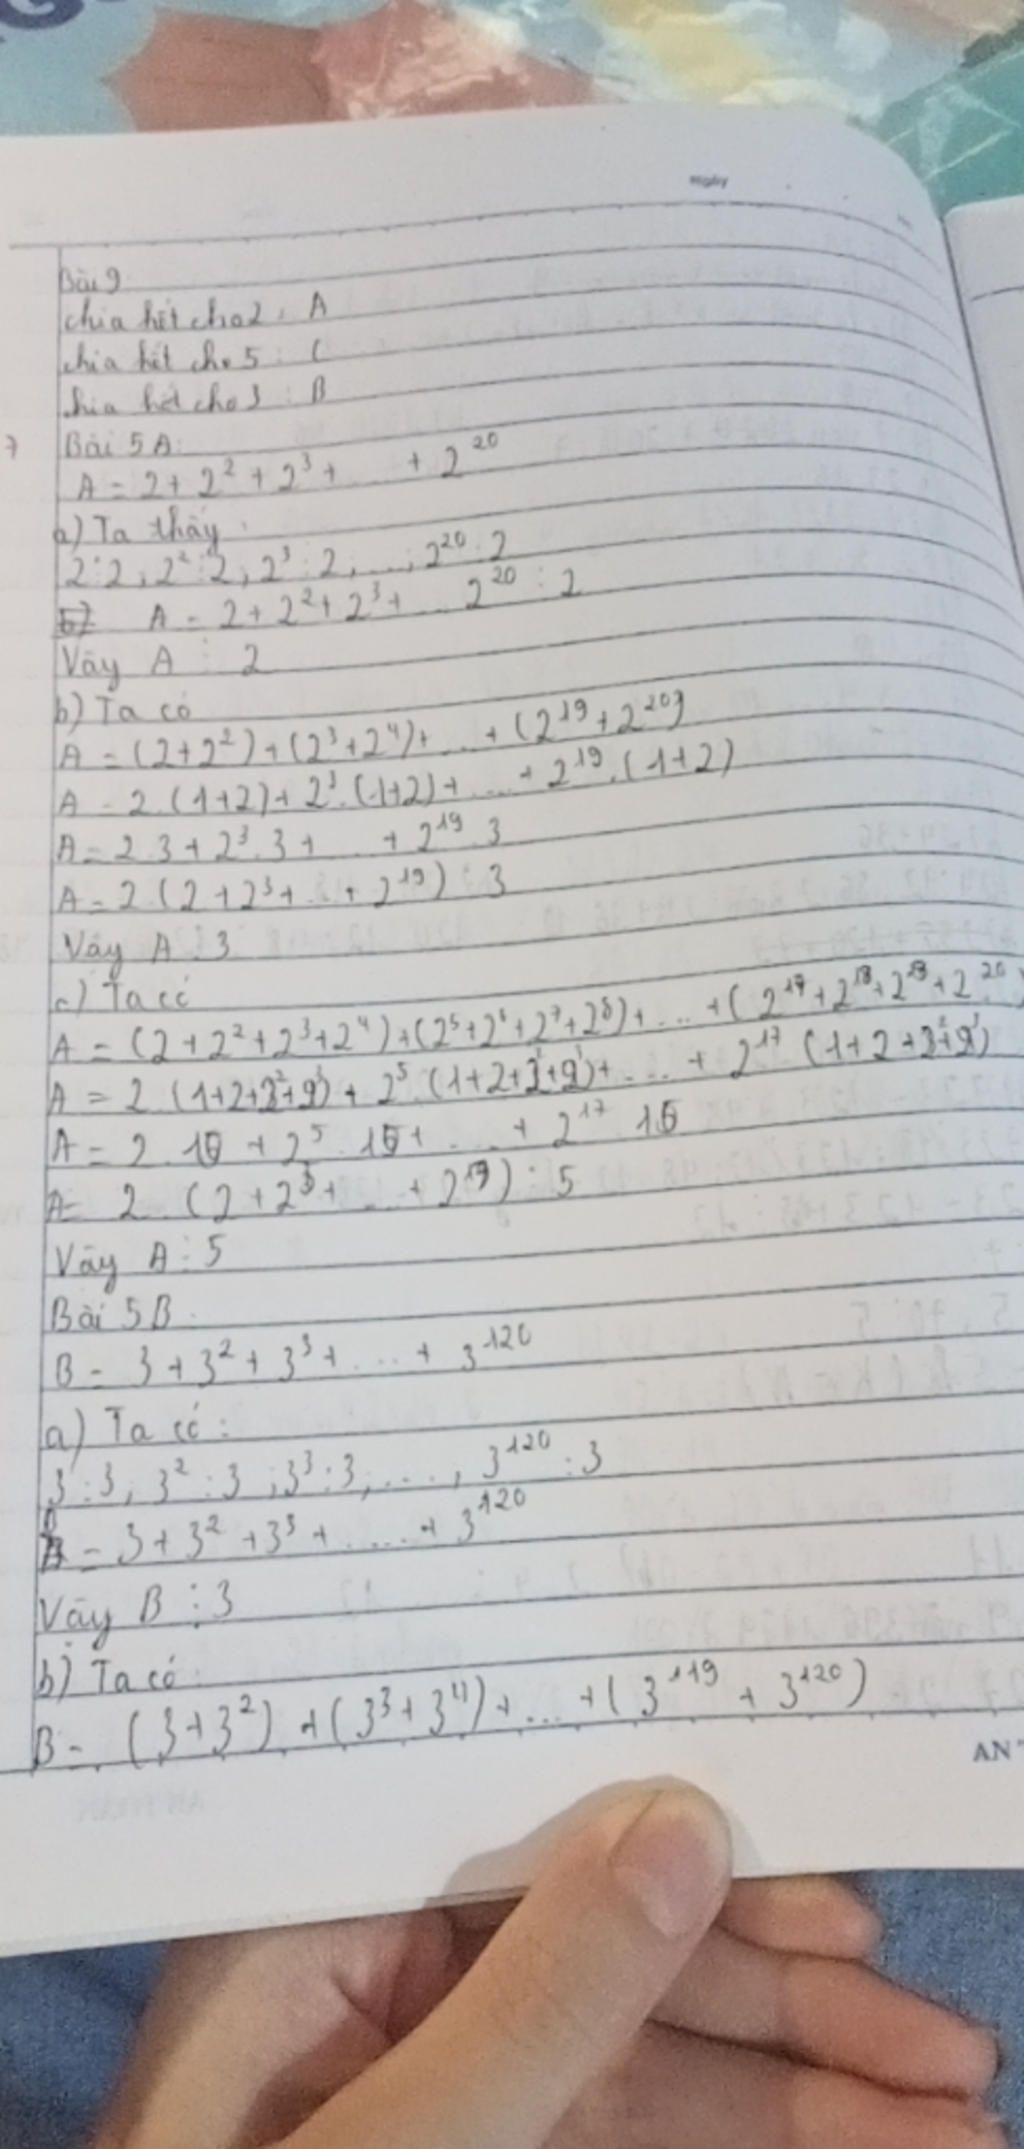 Ngày
Bài 9
chia hết cho 2 : A
chia hết cho 5 : C
chia hết cho 3 : B
7 Bài 5A:
A = 2 + 2² + 2³ + ... + 2²⁰
a) Ta thấy
2 ⋮ 2, 2² ⋮ 2, 2³ ⋮ 2, ..., 2²⁰ ⋮ 2
A = 2 + 2² + 2³ + ... 2²⁰ ⋮ 2
Vậy A ⋮ 2
b) Ta có
A = (2+2²) + (2³+2⁴) + ... + (2¹⁹+2²⁰)
A = 2.(1+2) + 2³.(1+2) + ... + 2¹⁹.(1+2)
A = 2.3 + 2³.3 + ... + 2¹⁹.3
A = 2.(2+2³+ ... + 2¹⁹) ⋮ 3
Vậy A ⋮ 3
c) Ta có
A = (2+2²+2³+2⁴) + (2⁵+2⁶+2⁷+2⁸) + ... + (2¹⁷+2¹⁸+2¹⁹+2²⁰)
A = 2.(1+2+2²+2³) + 2⁵.(1+2+2²+2³) + ... + 2¹⁷(1+2+2²+2³)
A = 2.15 + 2⁵.15 + ... + 2¹⁷.15
A = 2.(2+2⁵+ ... + 2¹⁷) ⋮ 5
Vậy A ⋮ 5
Bài 5B.
B = 3 + 3² + 3³ + ... + 3¹²⁰
a) Ta có:
3 ⋮ 3, 3² ⋮ 3; 3³ ⋮ 3, ..., 3¹²⁰ ⋮ 3
B = 3 + 3² + 3³ + .... + 3¹²⁰
Vậy B ⋮ 3
b) Ta có
B = (3+3²) + (3³+3⁴) + ... + (3¹¹⁹ + 3¹²⁰)
AN